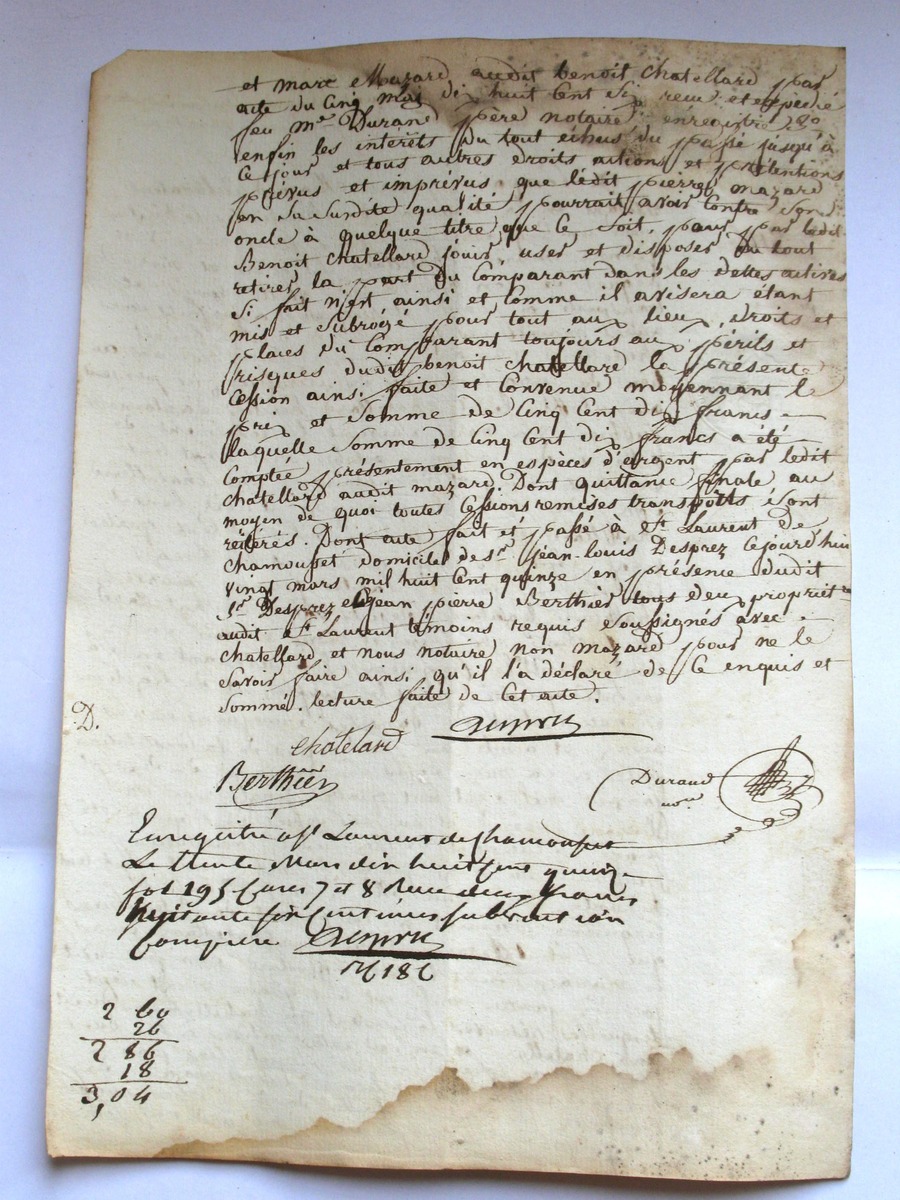 et marc Mazard audit benoit chatellard par
acte du Cinq Mai dix huit Cent dix recu et expédié
feu Me Durand père notaire enregistré
enfin les intérêts du tout échus du passé jusqu'à
ce jour et tous autres droits actions et prétentions
prévus et imprévus que lédit pierre mazard
en sa susdite qualité pourrait avoir contre son
oncle à quelque titre que ce soit, pour par ledit
Benoit chatellard jouir, user et disposer du tout
retirer la part du Comparant dans les dettes actives
Si fait n'est ainsi et Comme il avisera étant
mis et subrogé pour tout aux lieux, droits et
places du Comparant toujours aux périls et
risques dudit benoit chatellard la présente
Cession ainsi faite et Convenue moyennant le
prix et Somme de Cinq Cent dix francs -
laquelle Somme de Cinq Cent dix francs a été
Comptée présentement en espèces d'argent par ledit
chatellard audit mazard. Dont quittance finale au
moyen de quoi toutes Cessions remises transports sont
réitérés. Dont acte fait et passé à St Laurent de
chamousset domicile de sr jean-louis Desprez Cejourd'hui
vingt mars mil huit Cent quinze en présence dudit
Sr Desprez et jean pierre Berthier tous deux propriétres
audit St Laurent témoins requis Soussignés avec -
chatellard et nous notaire non mazard pour ne le
Savoir faire ainsi qu'il l'a déclaré de Ce enquis et
Sommé. lecture faite de Cet acte.
D.
Desprez
chatelard
Berthier
Durand
nore
Enregistré à St Laurent de Chamousset
Le trente Mars dix huit Cent quinze
fol 195 Cases 7 et 8 Recu deux francs
huitante six Centimes subvention
Comprise Desprez
2 60
26
2 86
18
3,04